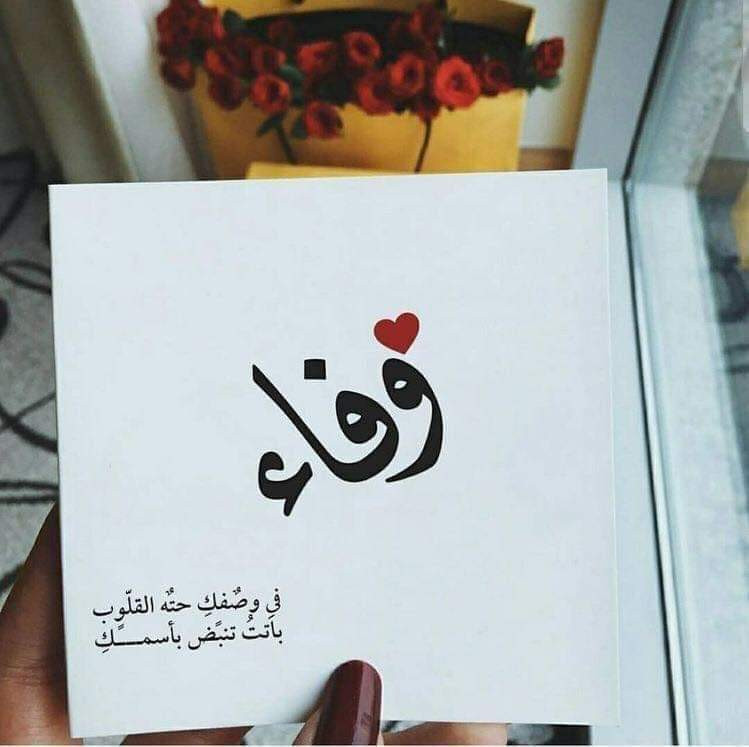 وفاء
في وصٌفكِ حتٌه القلّوب
باتتُ تنبًض بأسمـــكِ